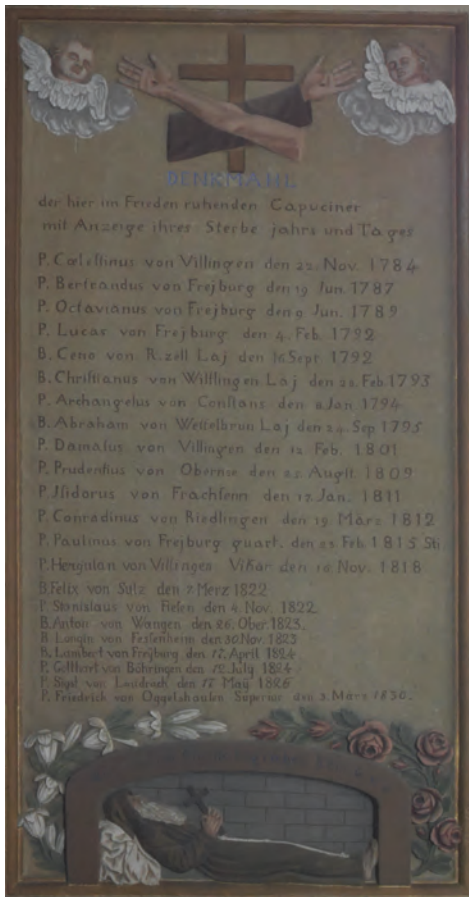 DENKMAHL
der hier im Frieden ruhenden Capuciner
mit Anzeige ihres Sterbe jahrs und Tages
P. Cœlestinus von Villingen den 22. Nov. 1784
P. Bertrandus von Frejburg den 19 Jun. 1787
P. Octavianus von Frejburg den 9 Jun. 1789
P. Lucas von Frejburg den 4. Feb. 1792
B. Ceno von R.zell Laj den 16 Sept 1792
B. Christianus von Willflingen Laj den 22. Feb. 1793
P. Archangelus von Constans den 8 Jan 1794
B. Abraham von Wettelbrun Laj den 24. Sep 1795
P. Damasus von Villingen den 12 Feb. 1801
P. Prudentius von den Augst. 1809
P. Isidorus von den 17. Jan. 1811
P. Conradinus von Riedlingen den 19. März 1812
P. Paulinus von Frejburg quart. den Feb. 1815
P. von Villingen Vikar den Nov. 1818
B. Felix von Sulz den 7. Merz 1822
P. Stanislaus von den 4. Nov. 1822.
B. Anton von Wangen den 26. Ober. 1823.
B. Longin von Fessenheim den 30. Nov. 1823
B. Lambert von Frejburg den April 1824.
P. Gotthart von Böhringen den 12. July 1824
P. von den 17 May 1826
P. Friedrich von Oggelshausen Superior den 3. März 1830.